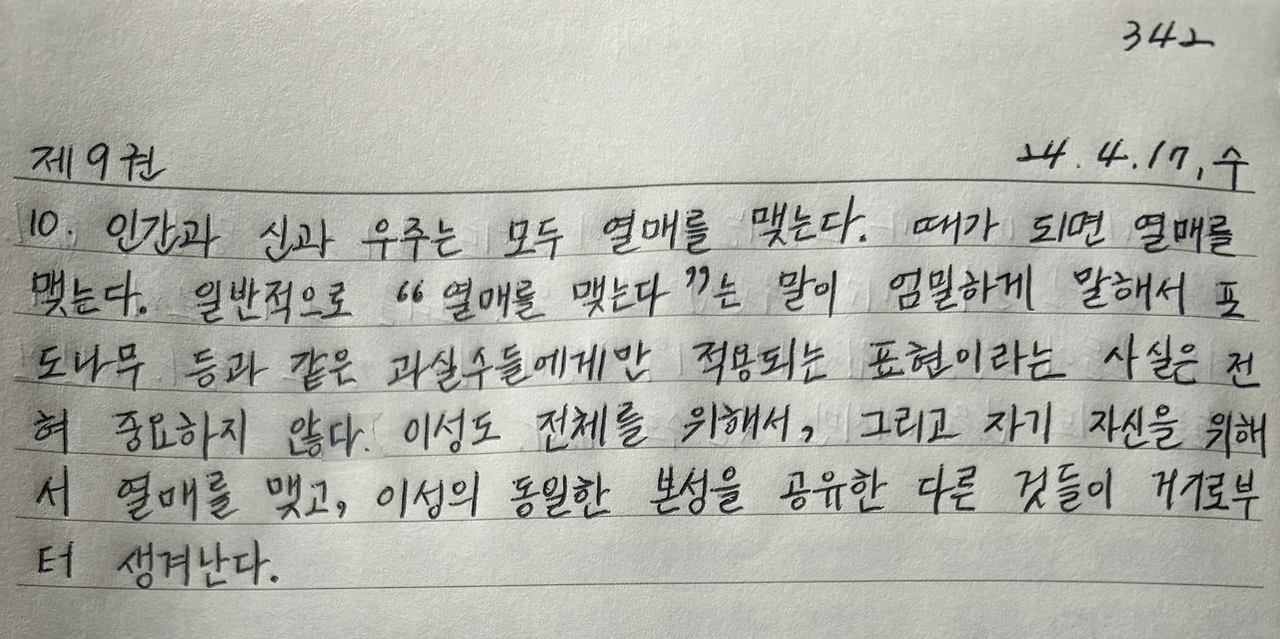 342
제9권 24.4.17, 수
10. 인간과 신과 우주는 모두 열매를 맺는다. 때가 되면 열매를
맺는다. 일반적으로 “열매를 맺는다”는 말이 엄밀하게 말해서 포
도나무 등과 같은 과실수들에게만 적용되는 표현이라는 사실은 전
혀 중요하지 않다. 이성도 전체를 위해서, 그리고 자기 자신을 위해
서 열매를 맺고, 이성의 동일한 본성을 공유한 다른 것들이 거기로부
터 생겨난다.